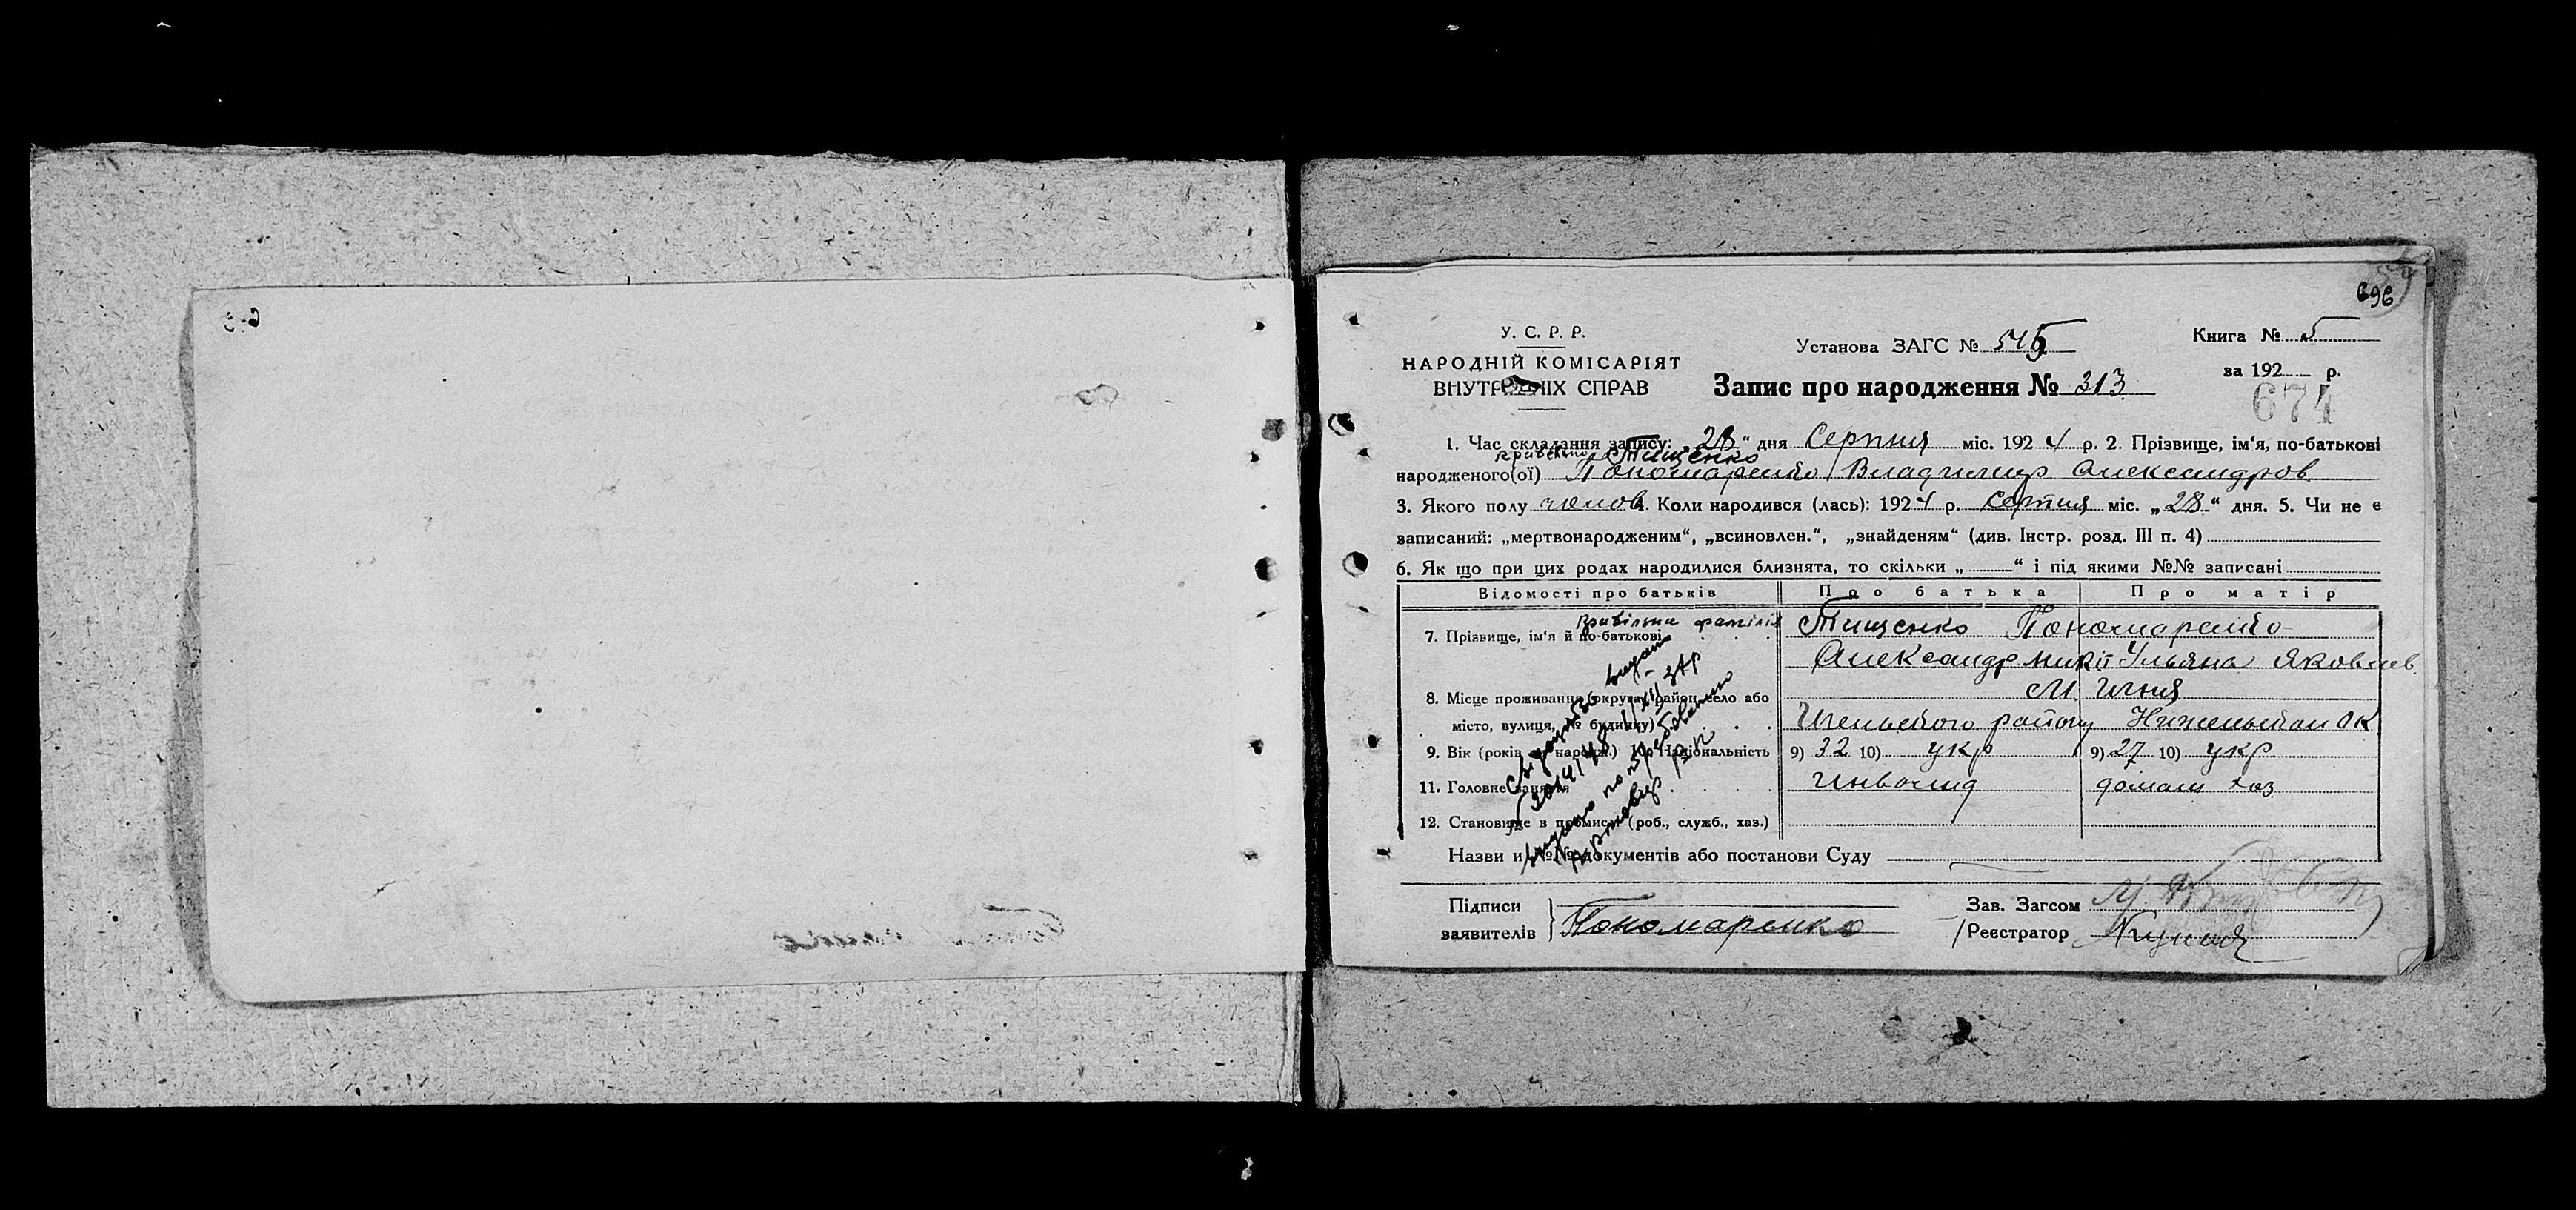 696
У. С. Р. Р.
НАРОДНІЙ КОМІСАРІЯТ
ВНУТРІШНІХ СПРАВ
Установа ЗАГС № 545
Книга № 5
за 192 р.
Запис про народження № 313
674
1. Час складання запису: „28“ дня Серпня міс. 1924 р. 2. Прізвище, ім‘я, по-батькові
Тищенко
народженого(ої) Пономаренко Владимир Александров
3. Якого полу чолов. 4. Коли народився (лась): 1924 р. Серпня міс. „28“ дня. 5. Чи не є
записаний: „мертвонародженим“, „всиновлен.“, „знайденям“ (див. Інстр. розд. III п. 4)
6. Як що при цих родах народилися близнята, то скільки „ “ і під якими №№ записані
Відомості про батьків Про батька Про матір
7. Прізвище, ім‘я й по-батькові Тищенко Пономаренко
Александр Микит Ульяна Яковлев
8. Місце проживання (округа, район, село або М. Ичня
місто, вулиця, № будинку) Иченьского району Ниженьской ОК
9. Вік (років народж.) 10. Національність 9) 32 10) укр 9) 27 10) укр
11. Головне заняття Инвалид домаш хаз
12. Становище в промисл. (роб., служб., хаз.)
Назви и №№ документів або постанови Суду
Підписи
заявителів Пономаренко
Зав. Загсом
Реєстратор